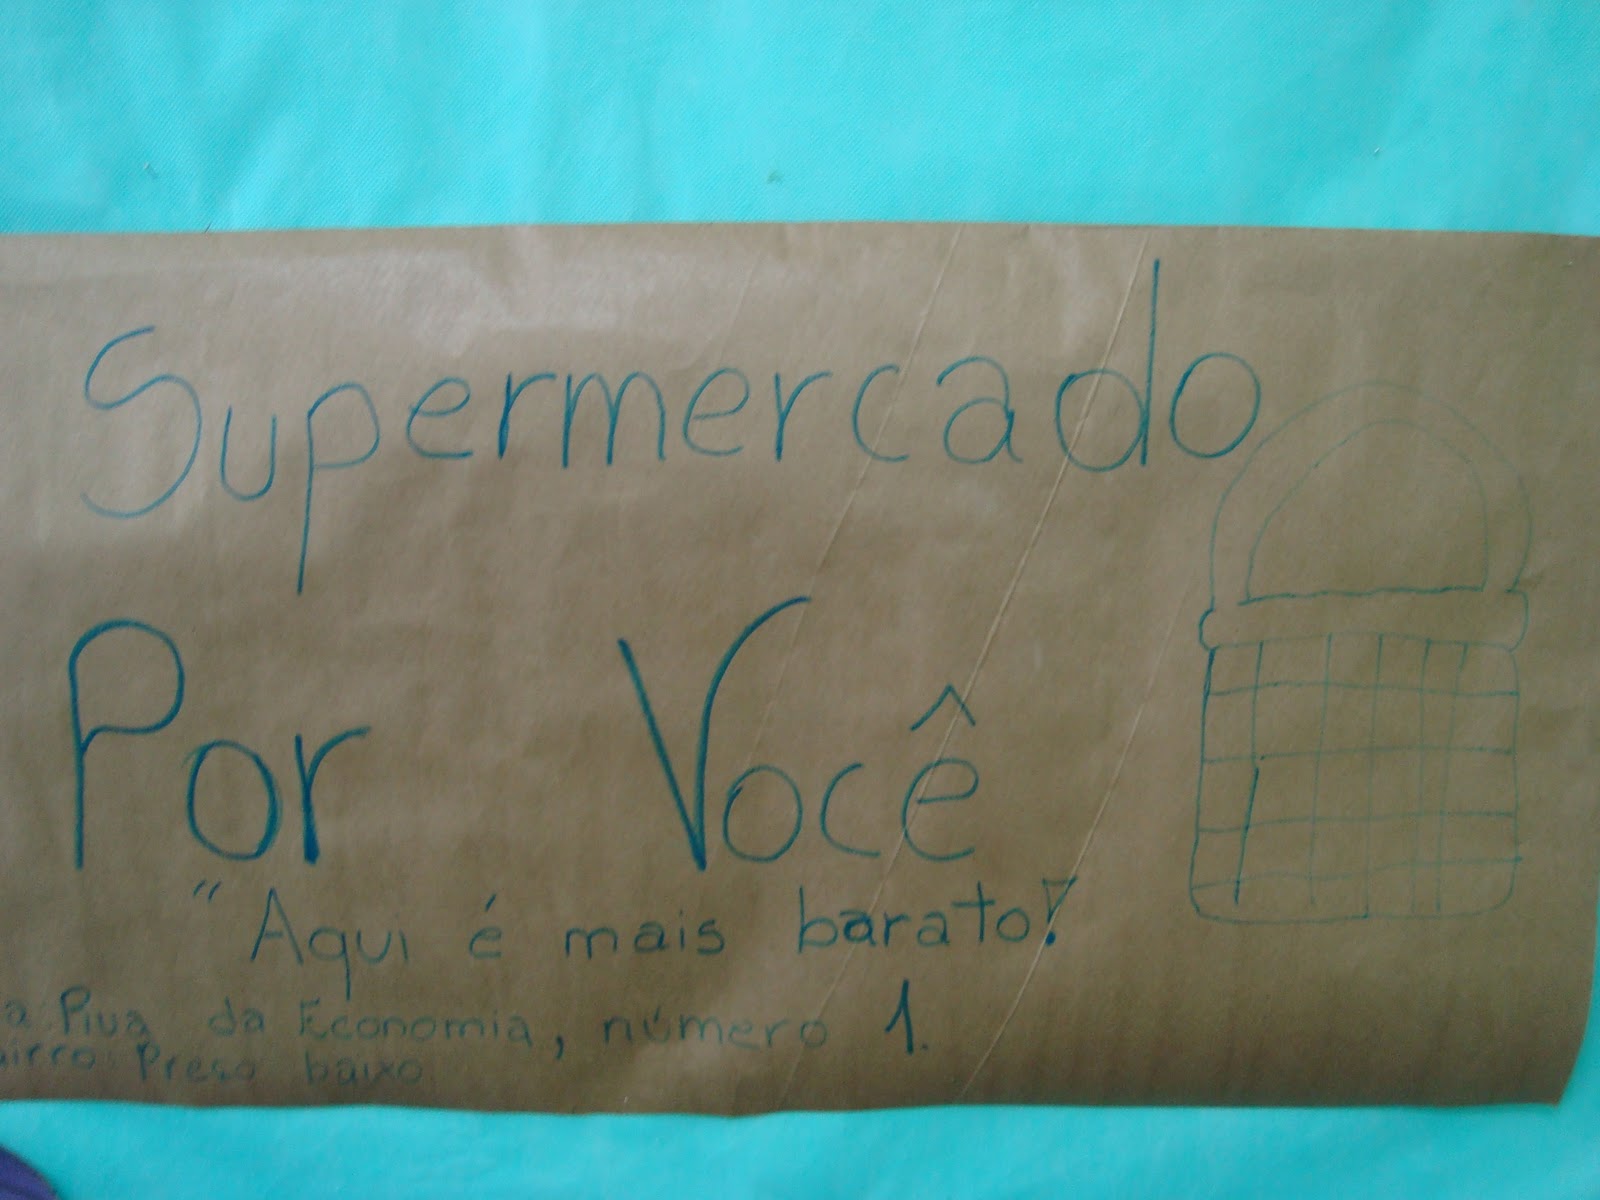 Supermercado
Por Você
"Aqui é mais barato!
a Piua da Economia, número 1.
airro: Preço baixo